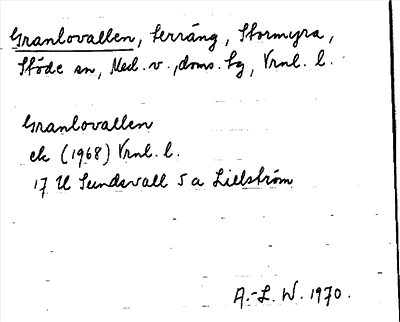 Granlovallen, terräng, Stormyra,
Stöde sn, Med. v., doms. tg, Vrnl. l.
Granlovallen
ek (1968) Vrnl. l.
17 H Sundsvall 5 a Lillström
A.-L. W. 1970.